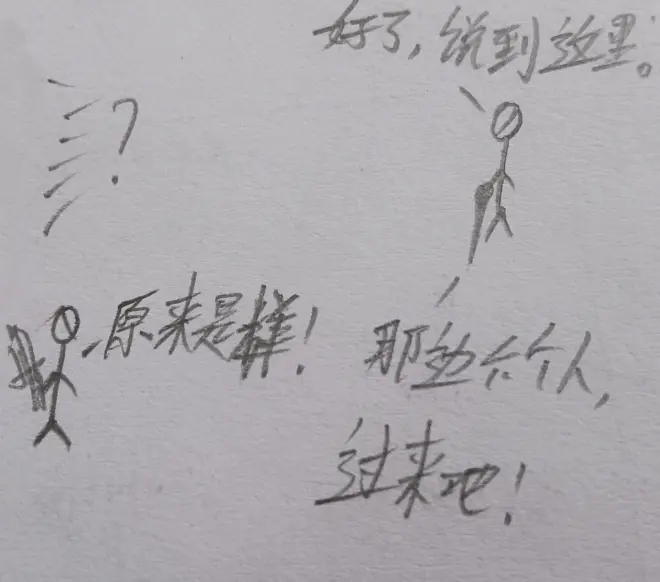 好了，说到这里。
？
原来是样！
那边六个人，
过来吧！